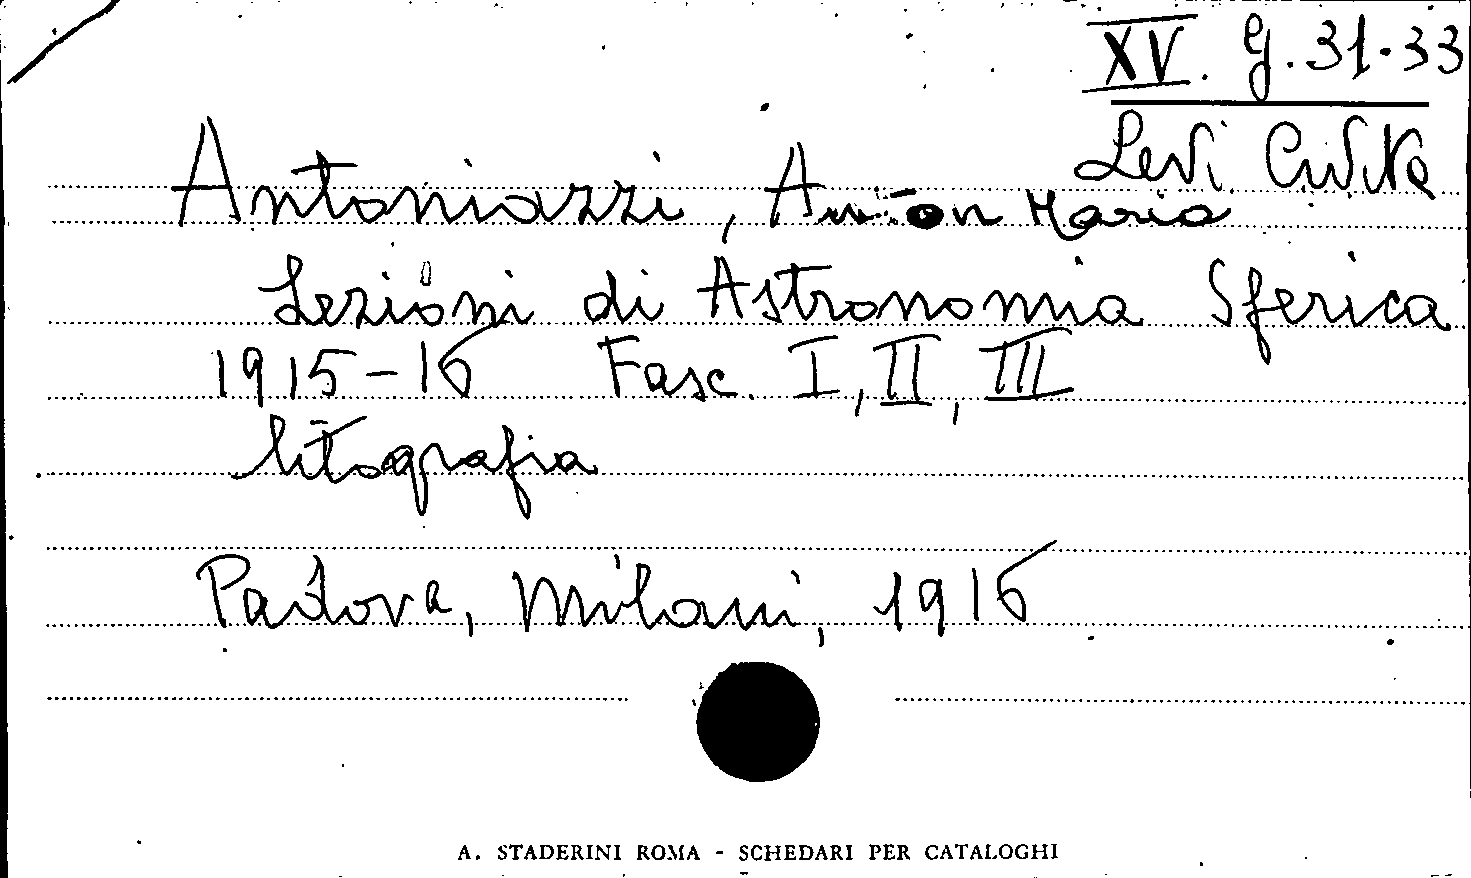 XV. G. 31-33
Levi Civita
Antoniazzi, Anton Maria
Lezioni di Astronomia Sferica
1915-16 Fasc. I, II, III
litografia
Padova, Milani, 1916
A. STADERINI ROMA - SCHEDARI PER CATALOGHI